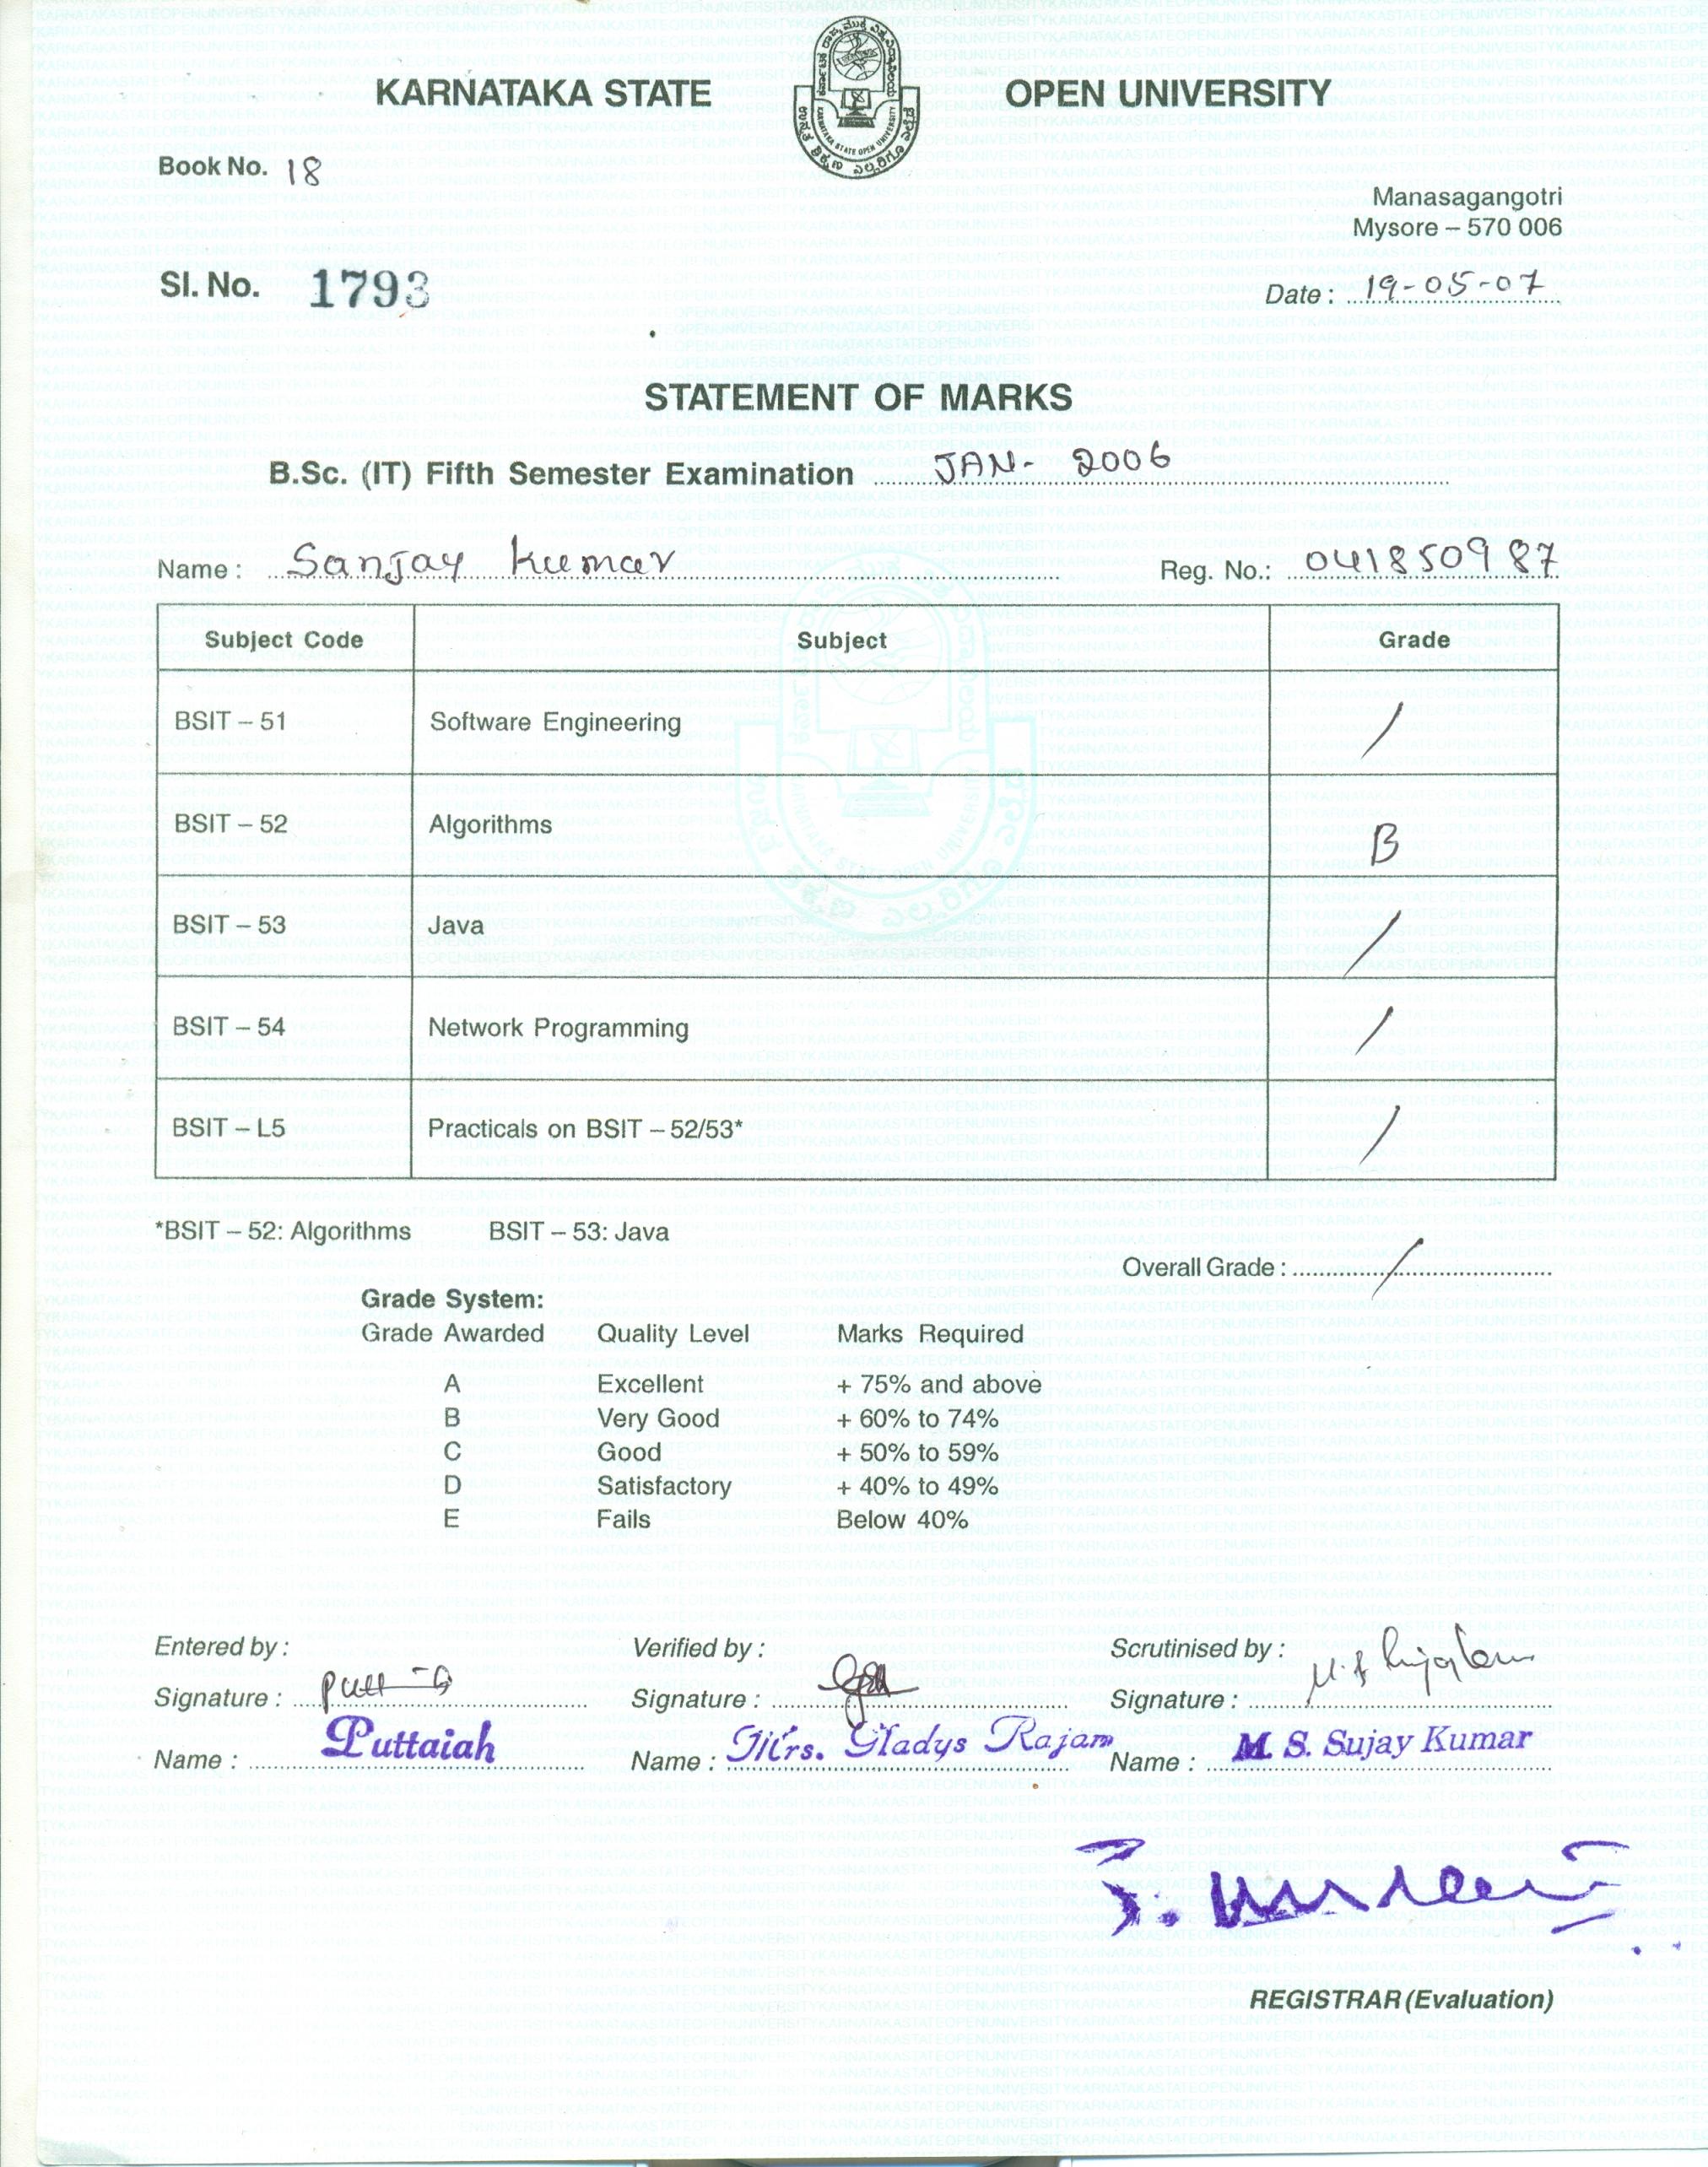 KARNATAKA STATE OPEN UNIVERSITY
KARNATAKA STATE OPEN UNIVERSITY
Book No. 18
Manasagangotri
Mysore – 570 006
Sl. No. 1793
Date : 19-05-07
STATEMENT OF MARKS
B.Sc. (IT) Fifth Semester Examination JAN- 2006
Name : Sanjay Kumar Reg. No.: 041850987
Subject Code Subject Grade
BSIT – 51 Software Engineering /
BSIT – 52 Algorithms B
BSIT – 53 Java /
BSIT – 54 Network Programming /
BSIT – L5 Practicals on BSIT – 52/53* /
*BSIT – 52: Algorithms BSIT – 53: Java
Overall Grade : /
Grade System:
Grade Awarded Quality Level Marks Required
A Excellent + 75% and above
B Very Good + 60% to 74%
C Good + 50% to 59%
D Satisfactory + 40% to 49%
E Fails Below 40%
Entered by : Verified by : Scrutinised by :
Signature : Signature : Signature :
Name : Puttaiah Name : Mrs. Gladys Rajam Name : M. S. Sujay Kumar
REGISTRAR (Evaluation)